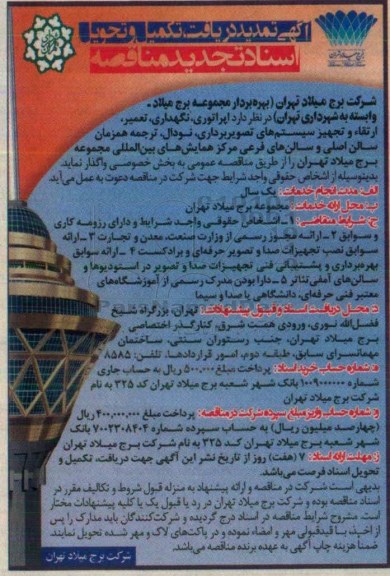 آگهی تمدید دریافت، تکمیل و تحویل
اسناد تجدید مناقصه
شرکت برج میلاد تهران (بهره‌بردار مجموعه برج میلاد -
وابسته به شهرداری تهران) در نظر دارد اپراتوری، نگهداری، تعمیر،
ارتقاء و تجهیز سیستم‌های تصویربرداری، نودال، ترجمه همزمان
سالن اصلی و سالن‌های فرعی مرکز همایش‌های بین‌المللی مجموعه
برج میلاد تهران را از طریق مناقصه عمومی به بخش خصوصی واگذار نماید.
بدینوسیله از اشخاص حقوقی واجد شرایط جهت شرکت در مناقصه دعوت به عمل می‌آید.
الف: مدت انجام خدمات: یک سال
ب: محل ارائه خدمات: مجموعه برج میلاد تهران
ج: شرایط متقاضی: ۱ - اشخاص حقوقی واجد شرایط و دارای رزومه کاری
و سوابق ۲ - ارائه مجوز رسمی از وزارت صنعت، معدن و تجارت ۳ - ارائه
سوابق نصب تجهیزات صدا و تصویر حرفه‌ای و برادکست ۴ - ارائه سوابق
بهره‌برداری و پشتیبانی فنی تجهیزات صدا و تصویر در استودیوها و
سالن‌های آمفی تئاتر ۵ - دارا بودن مدرک رسمی از آموزشگاه‌های
معتبر فنی حرفه‌ای، دانشگاهی یا صدا و سیما
د: محل دریافت اسناد و قبول پیشنهادات: تهران، بزرگراه شیخ
فضل‌الله نوری، ورودی همت شرق، کنارگذر اختصاصی
برج میلاد تهران، جنب رستوران سنتی، ساختمان
مهمانسرای سابق، طبقه دوم، امور قراردادها. تلفن: ۸۵۸۵
ه: شماره حساب خرید اسناد: پرداخت مبلغ ۵۰۰,۰۰۰ ریال به حساب جاری
شماره ۱۰۰۹۰۰۰۰۰۰ بانک شهر شعبه برج میلاد تهران کد ۳۲۵ به نام
شرکت برج میلاد تهران
و: شماره حساب واریز مبلغ سپرده شرکت در مناقصه: پرداخت مبلغ ۴۰۰,۰۰۰,۰۰۰ ریال
(چهارصد میلیون ریال) به حساب سپرده شماره ۷۰۰۲۳۰۸۴۰۴ بانک
شهر شعبه برج میلاد تهران کد ۳۲۵ به نام شرکت برج میلاد تهران
ز: مهلت ارائه اسناد: ۷ (هفت) روز از تاریخ نشر این آگهی جهت دریافت، تکمیل و
تحویل اسناد فرصت می‌باشد.
بدیهی است شرکت در مناقصه و ارائه پیشنهاد به منزله قبول شروط و تکالیف مقرر در
اسناد مناقصه بوده و شرکت برج میلاد تهران در رد یا قبول یک یا کلیه پیشنهادات مختار
است. مشروح شرایط مناقصه در اسناد درج گردیده و شرکت‌کنندگان باید مدارک را پس
از اخذ، با قید قبولی مهر و امضاء نموده و در پاکت‌های لاک و مهر شده تحویل نمایند.
ضمناً هزینه چاپ آگهی به عهده برنده مناقصه می‌باشد.
شرکت برج میلاد تهران